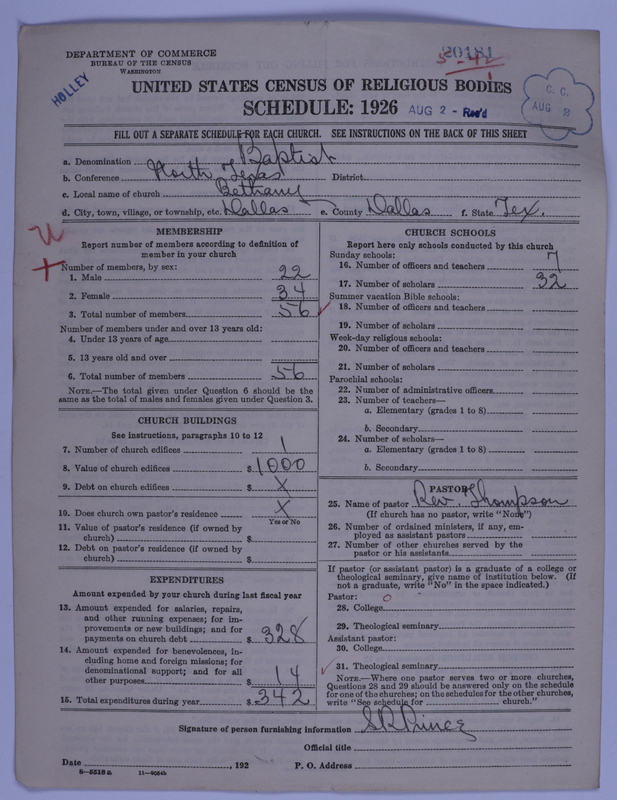 DEPARTMENT OF COMMERCE
BUREAU OF THE CENSUS
WASHINGTON
20181
5-42
HOLLEY
UNITED STATES CENSUS OF RELIGIOUS BODIES
SCHEDULE: 1926
AUG 2 - Rec'd
C. C.
AUG 2
FILL OUT A SEPARATE SCHEDULE FOR EACH CHURCH. SEE INSTRUCTIONS ON THE BACK OF THIS SHEET
a. Denomination Baptist
b. Conference North Texas District
c. Local name of church Bethany
d. City, town, village, or township, etc. Dallas e. County Dallas f. State Tex.
MEMBERSHIP
Report number of members according to definition of
member in your church
Number of members, by sex:
1. Male 22
2. Female 34
3. Total number of members 56
Number of members under and over 13 years old:
4. Under 13 years of age
5. 13 years old and over
6. Total number of members 56
NOTE.—The total given under Question 6 should be
same as the total of males and females given under Question 3.
CHURCH BUILDINGS
See instructions, paragraphs 10 to 12
7. Number of church edifices 1
8. Value of church edifices $ 1000
9. Debt on church edifices $ X
10. Does church own pastor's residence X
Yes or No
11. Value of pastor's residence (if owned by
church) $
12. Debt on pastor's residence (if owned by
church) $
EXPENDITURES
Amount expended by your church during last fiscal year
13. Amount expended for salaries, repairs,
and other running expenses; for im-
provements or new buildings; and for
payments on church debt $ 328
14. Amount expended for benevolences, in-
cluding home and foreign missions; for
denominational support; and for all
other purposes $ 14
15. Total expenditures during year $ 342
CHURCH SCHOOLS
Report here only schools conducted by this church
Sunday schools:
16. Number of officers and teachers 7
17. Number of scholars 32
Summer vacation Bible schools:
18. Number of officers and teachers
19. Number of scholars
Week-day religious schools:
20. Number of officers and teachers
21. Number of scholars
Parochial schools:
22. Number of administrative officers
23. Number of teachers—
a. Elementary (grades 1 to 8)
b. Secondary
24. Number of scholars—
a. Elementary (grades 1 to 8)
b. Secondary
PASTOR
25. Name of pastor Rev. Thompson
(If church has no pastor, write "None")
26. Number of ordained ministers, if any, em-
ployed as assistant pastors
27. Number of other churches served by the
pastor or his assistants
If pastor (or assistant pastor) is a graduate of a college or
theological seminary, give name of institution below. (If
not a graduate, write "No" in the space indicated.)
Pastor: O
28. College
29. Theological seminary
Assistant pastor:
30. College
31. Theological seminary
NOTE.—Where one pastor serves two or more churches,
Questions 28 and 29 should be answered only on the schedule
for one of the churches; on the schedules for the other churches,
write "See schedule for church."
Signature of person furnishing information S R Prince
Official title
Date , 192 P. O. Address
8—5518 a 11—9054b